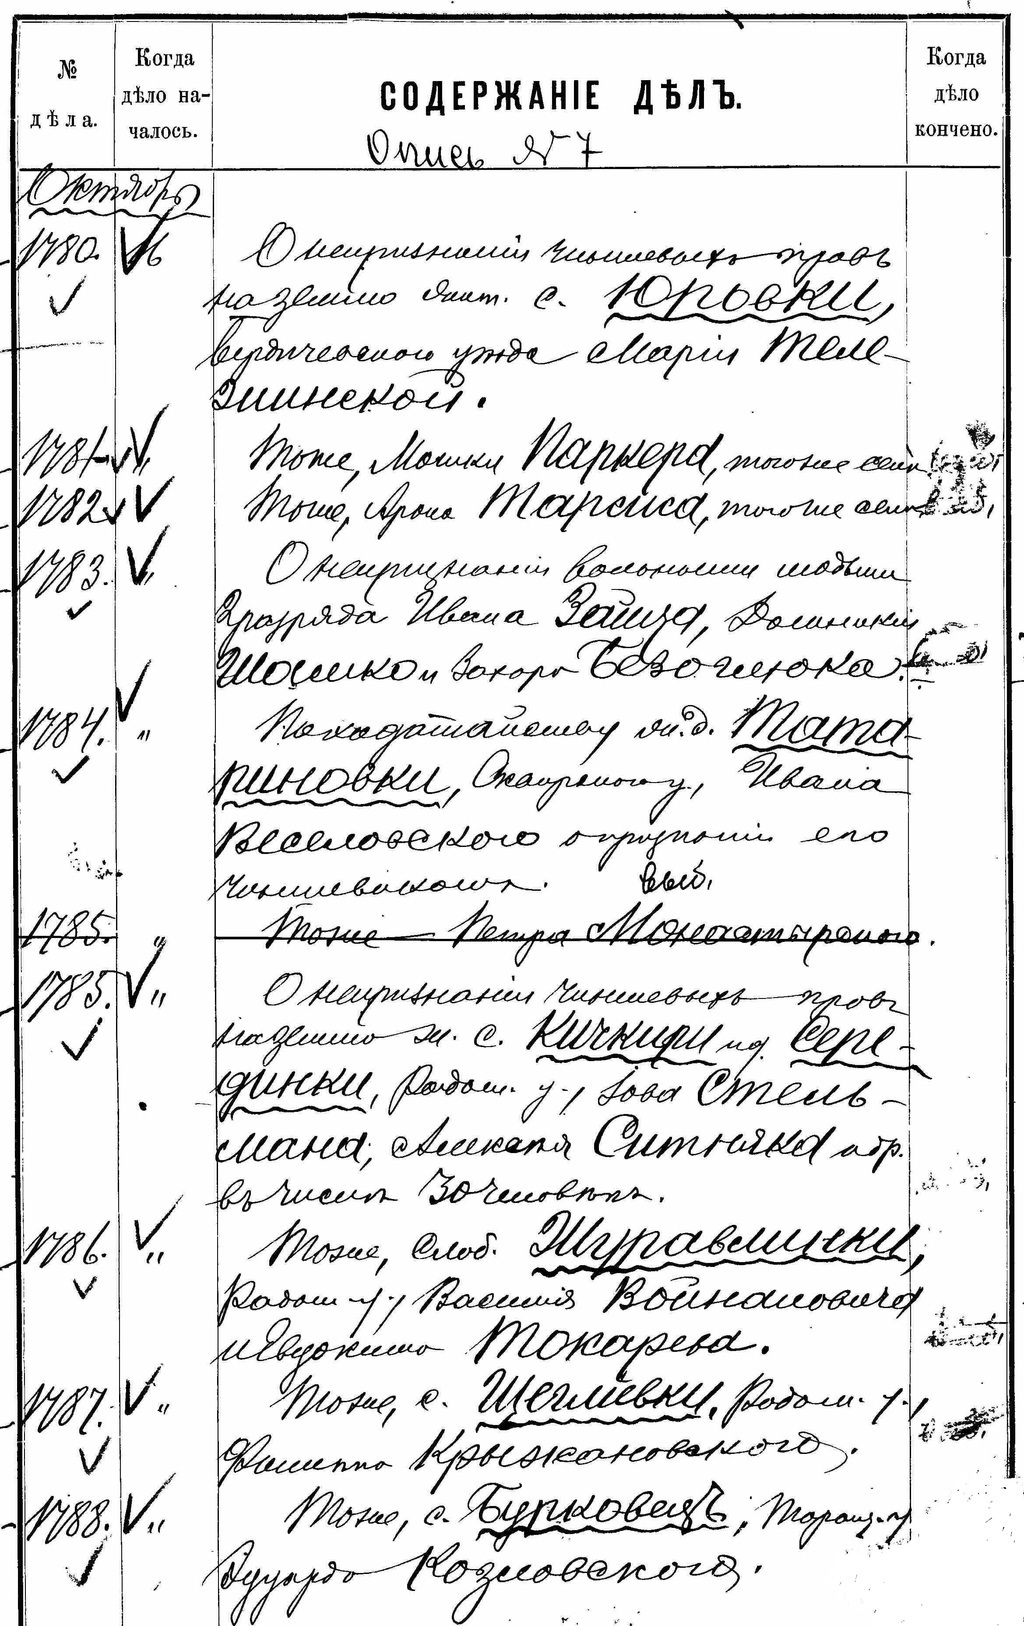 № дѣла.
Когда дѣло началось.
СОДЕРЖАНІЕ ДѢЛЪ.
Когда дѣло кончено.
Опись № 7
Октябрь
1780. 16 О непризнаніи чиншевыхъ правъ
на землю жит. с. Юровки,
Бердичевскаго уѣзда Маріи Теле-
жинской.
1781 " Тоже, Мошки Паркера, тогоже села
1782 " Тоже, Арона Тарсиса, тогоже села
1783. " О непризнаніи вольными людьми
2 разряда Ивана Зайца, Доминикія
Шашко и Захара Безоглюка.
1784. " По ходатайству жит. д. Тата-
риновки, Сквирскаго у., Ивана
Веселовскаго о признаніи его
чиншевикомъ. выб.
1785. " Тоже — Петра Монастырскаго.
1785. " О непризнаніи чиншевыхъ правъ
на землю ж. с. Кичкири и д. Сере-
динки, Радом. у., Іова Стель-
маха, Алексѣя Ситняка и др.
въ числѣ 30 человѣкъ.
1786. " Тоже, слоб. Журавлинки,
Радом. у., Василія Войналовича
и Евдокима Токарева.
1787. " Тоже, с. Щеглѣевки, Радом. у.,
Филиппа Крыжановскаго.
1788. " Тоже, с. Бурковецъ, Таращ. у.
Эдуарда Козловскаго.